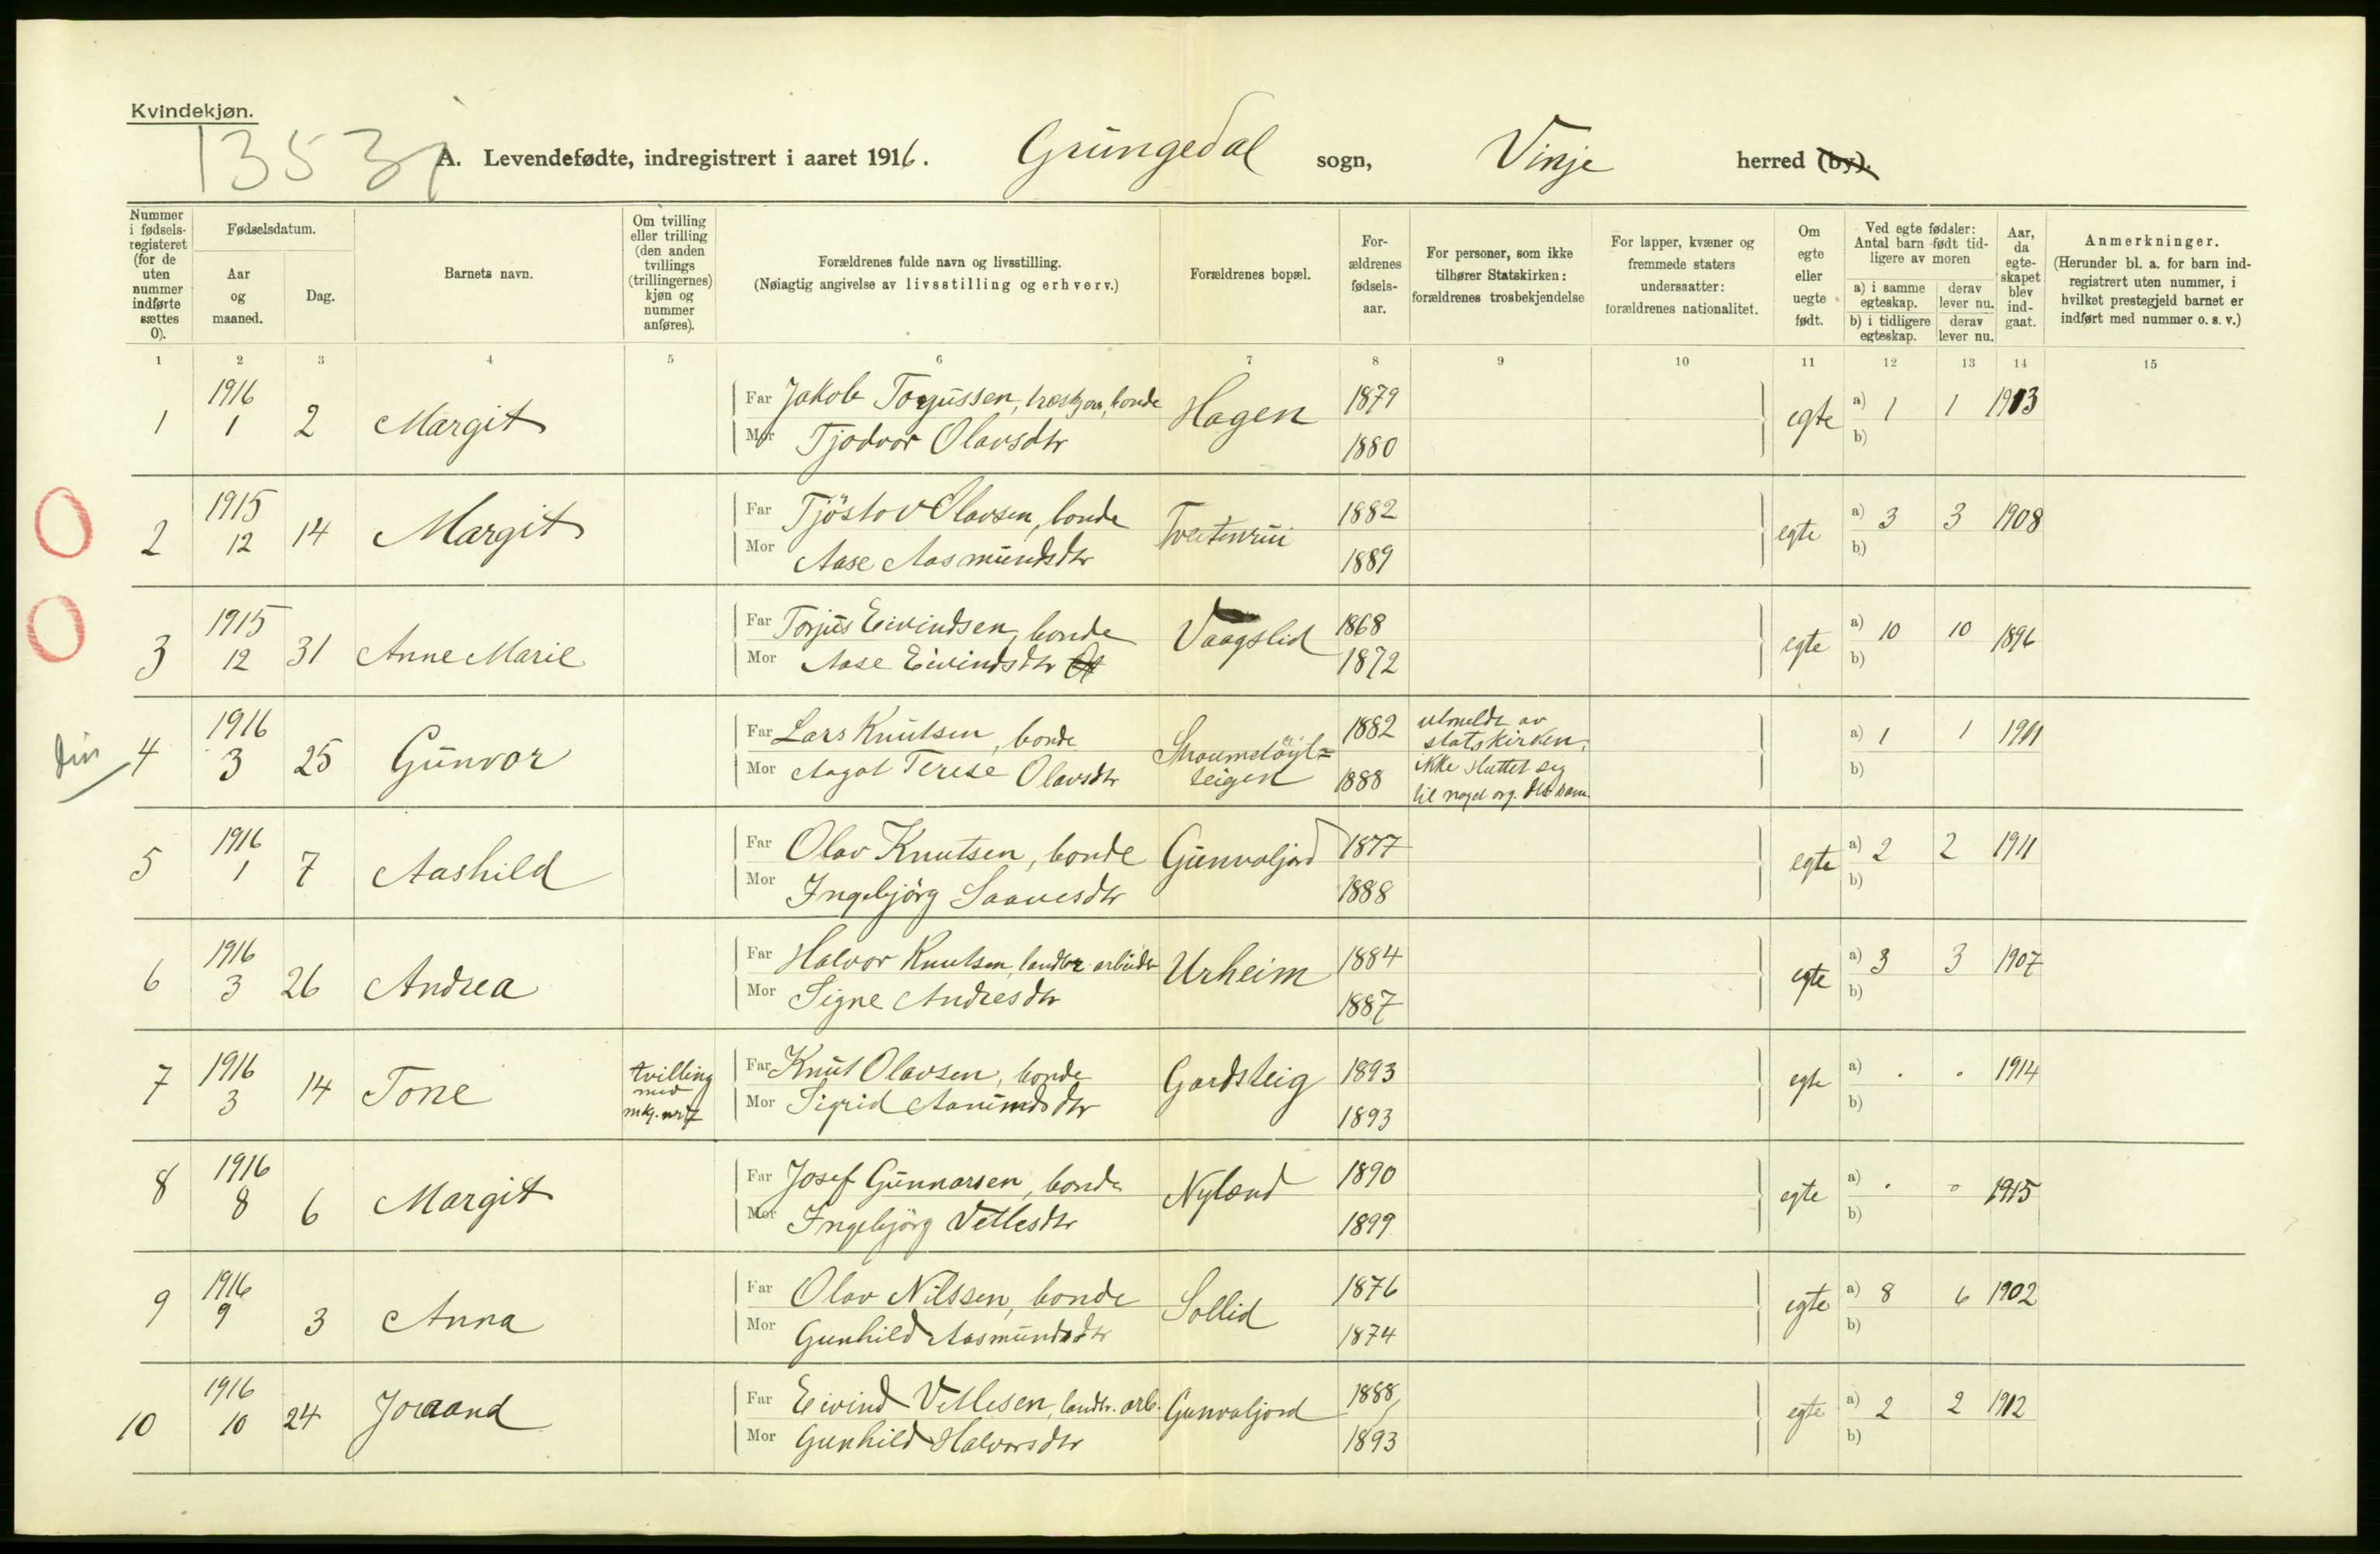 Kvindekjøn.
1353
A. Levendefødte, indregistrert i aaret 1916. Grungedal sogn, Vinje herred (by).
Nummer i fødselsregisteret (for de uten nummer indførte sættes 0).
Fødselsdatum.
Aar og maaned.
Dag.
Barnets navn.
Om tvilling eller trilling (den anden tvillings (trillingernes) kjøn og nummer anføres).
Forældrenes fulde navn og livsstilling.
(Nøiagtig angivelse av livsstilling og erhverv.)
Forældrenes bopæl.
Forældrenes fødselsaar.
For personer, som ikke tilhører Statskirken: forældrenes trosbekjendelse
For lapper, kvæner og fremmede staters undersaatter: forældrenes nationalitet.
Om egte eller uegte født.
Ved egte fødsler: Antal barn født tidligere av moren
a) i samme egteskap. derav lever nu.
b) i tidligere egteskap. derav lever nu.
Aar, da egteskapet blev indgaat.
Anmerkninger.
(Herunder bl. a. for barn indregistrert uten nummer, i hvilket prestegjeld barnet er indført med nummer o. s. v.)
1 2 3 4 5 6 7 8 9 10 11 12 13 14 15
1 1916 1 2 Margit Far Jakob Torjussen, bonde Hagen 1879 egte a) 1 1 1913
Mor Tjodvor Olavsdtr 1880 b)
0 2 1915 12 14 Margit Far Tjöstov Olavsen, bonde 1882 egte a) 3 3 1908
Mor Aase Aasmundsdtr 1889 b)
0 3 1915 12 31 Anne Marie Far Torjus Eivindsen, bonde Vaagslid 1868 egte a) 10 10 1896
Mor Aase Eivindsdtr 1872 b)
4 1916 3 25 Gunvor Far Lars Knutsen, bonde 1882 utmeldt av statskirken, a) 1 1 1911
Mor Aagot Terese Olavsdtr teigen 1888 ikke sluttet seg til noget org. b)
5 1916 1 7 Aashild Far Olav Knutsen, bonde Gunvaljord 1877 egte a) 2 2 1911
Mor Ingebjörg Saavesdtr 1888 b)
6 1916 3 26 Andrea Far Halvor Knutsen, landbr. arbeider Urheim 1884 egte a) 3 3 1907
Mor Signe Andresdtr 1887 b)
7 1916 3 14 Tone tvilling med mkj. nr 7 Far Knut Olavsen, bonde Gardsteig 1893 egte a) . . 1914
Mor Sigrid Aanundsdtr 1893 b)
8 1916 8 6 Margit Far Josef Gunnarsen, bonde Nyland 1890 egte a) . . 1915
Mor Ingebjörg Vetlesdtr 1899 b)
9 1916 9 3 Anna Far Olav Nilssen, bonde Sollid 1876 egte a) 8 6 1902
Mor Gunhild Aasmundsdtr 1874 b)
10 1916 10 24 Joraand Far Eivind Vetlesen, landbr. arb. Gunvaljord 1888 egte a) 2 2 1912
Mor Gunhild Halvorsdtr 1893 b)